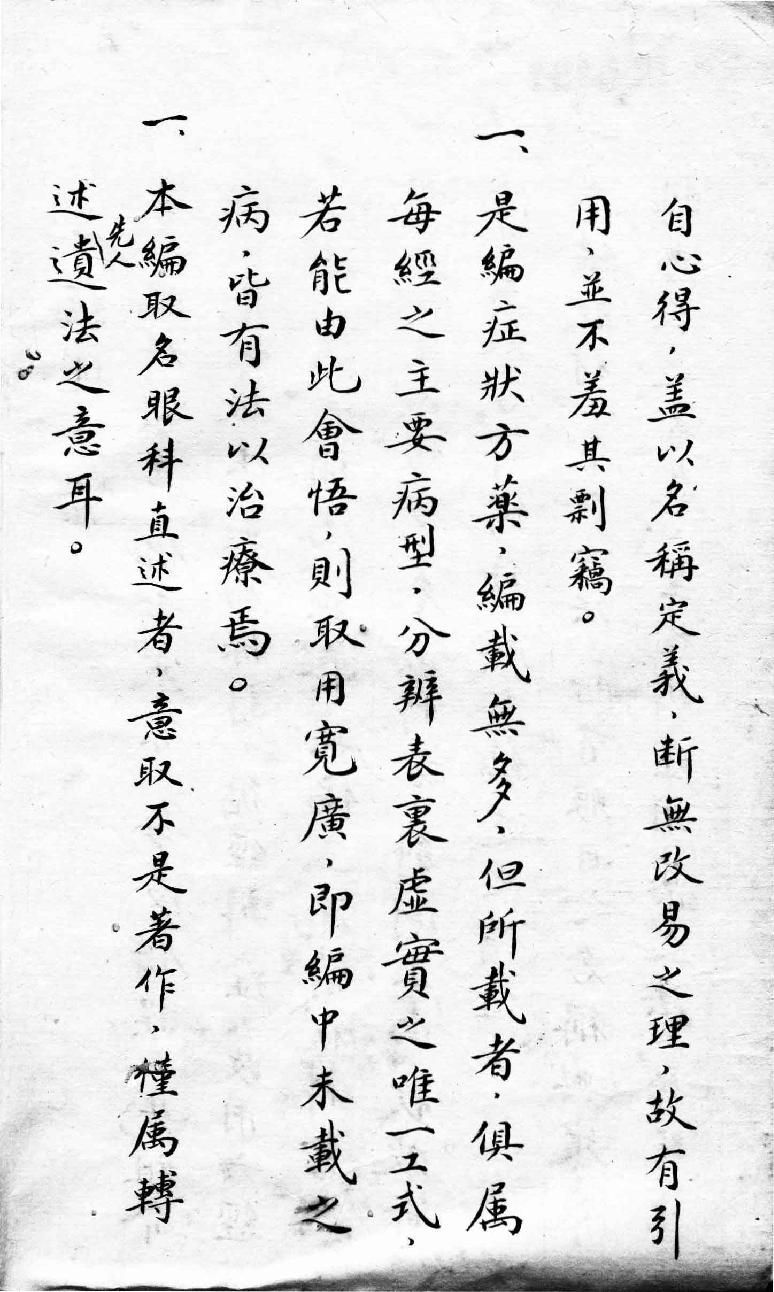 自心得，盖以名稱定義，断無改易之理，故有引
用，並不羞其剽竊。
一、是編症狀方薬，編載無多，但所載者，俱属
每經之主要病型，分辨表裏虛實之唯一工式，
若能由此會悟，則取用寬廣，即編中未載之
病，皆有法以治療焉。
一、本編取名眼科直述者，意取不是著作，僅属轉
述先人遺法之意耳。